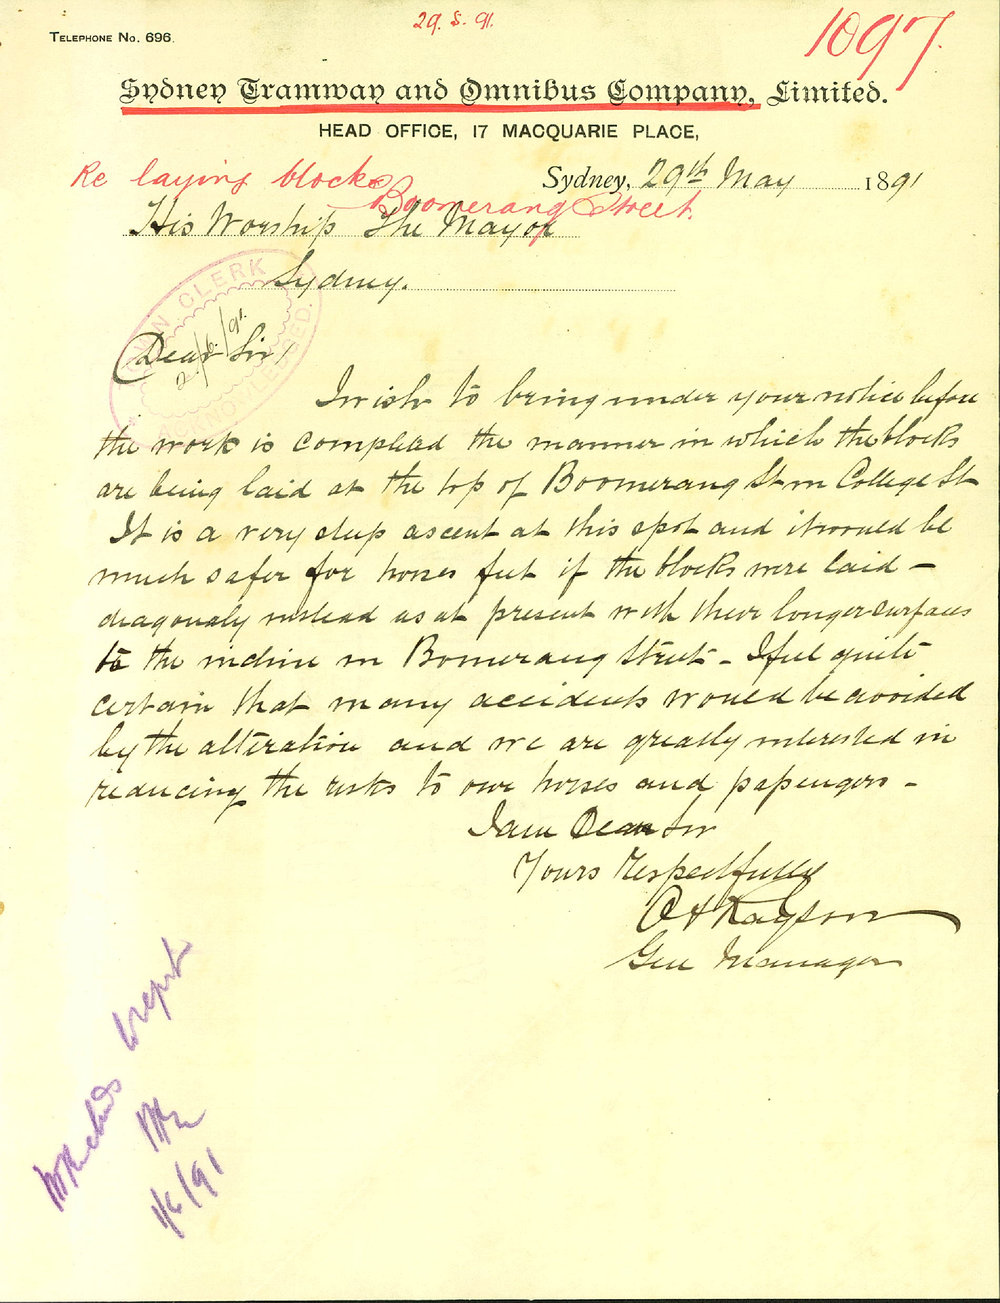 29.5.91.
1097
TELEPHONE No. 696.
Sydney Tramway and Omnibus Company, Limited.
HEAD OFFICE, 17 MACQUARIE PLACE,
Re laying blocks
Boomerang Street
Sydney, 29th May 1891
His Worship The Mayor
Sydney.
TOWN CLERK
2/6/91.
ACKNOWLEDGED.
Dear Sir/
I wish to bring under your notice before
the work is completed the manner in which the blocks
are being laid at the top of Boomerang St in College St
It is a very steep ascent at this spot and it would be
much safer for horses feet if the blocks were laid –
diagonaly instead as at present with their longer surfaces
to the incline in Bomerang Street – I feel quite
certain that many accidents would be avoided
by the alteration and we are greatly interested in
reducing the risks to our horses and passengers –
I am Dear Sir
Yours Respectfully
Gen Manager
Mr Richards report
1/6/91